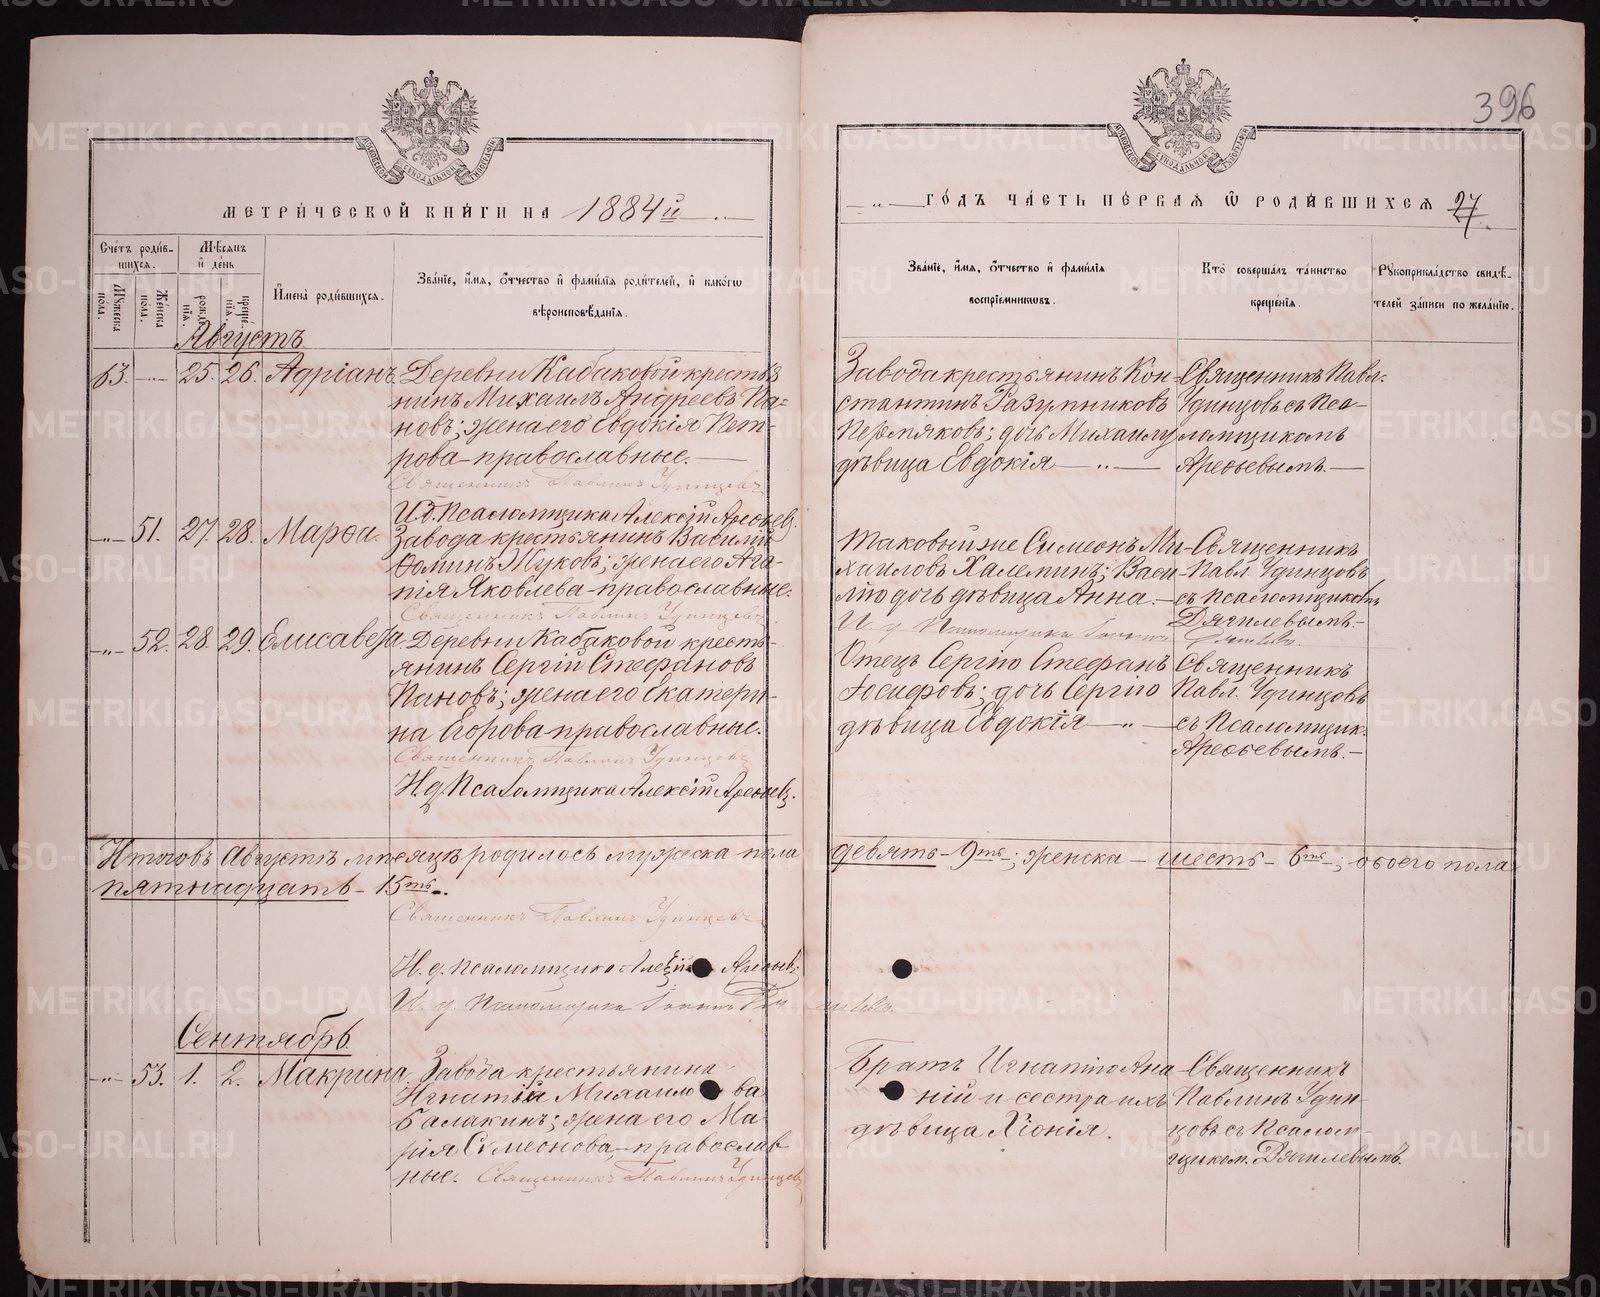 396
МЕТРИ́ЧЕСКОЙ КНИ́ГИ НА 1884й
ГО́ДЪ ЧА́СТЬ ПЕ́РВАЯ Ѿ РОДИ́ВШИХСЯ 27.
Сче́тъ роди́в-
шихся.
Мѣ́сяцъ
и де́нь
Му́жеска
по́ла.
Же́нска
по́ла.
рожде́
нія.
креще́-
нія.
Имена́ роди́вшихся.
Зва́ніе, и́мя, о́тчество и фами́лія роди́телей, и како́гѡ
вѣроисповѣ́данія.
Зва́ніе, и́мя, о́тчество и фами́лія
воспріе́мниковъ.
Кто̀ соверша́лъ та́инство
креще́нія.
Рукоприкла́дство свидѣ́-
телей за́писи по жела́нію.
Августъ
63. 25. 26. Адріанъ
Деревни Кабаковой крестья
нинъ Михаилъ Андреевъ Па=
новъ; жена его Евдокія Пет-
рова-православные.
Священникъ Павлинъ Удинцевъ
И.д. Псаломщика Алексій Арефьев.
Завода крестьянинъ Кон-
стантинъ Разумниковъ
Пермяковъ; дочь Михаилу
дѣвица Евдокія
Священникъ Павл.
Удинцовъ съ Пса-
ломщикомъ
Арефьевымъ.
51. 27. 28. Марѳа.
Завода крестьянинъ Василій
Ѳоминъ Жуковъ; жена его Ага-
пія Яковлева-православные.
Священникъ Павлинъ Удинцевъ
Таковый же Симеонъ Ми-
хаиловъ Халеминъ; Васи-
лію дочь дѣвица Анна.
И. д. Псаломщика
Священникъ
Павл. Удинцовъ
съ Псаломщикомъ
Дягилевымъ.
52. 28. 29. Елисавета.
Деревни Кабаковой кресть-
янинъ Сергій Стефановъ
Пановъ; жена его Екатери-
на Егорова-православные.
Священникъ Павлинъ Удинцевъ
И.д. Псаломщика Алексій Арефьев.
Отецъ Сергію Стефанъ
Іосифовъ; дочь Сергію
дѣвица Евдокія
Священникъ
Павл. Удинцовъ
съ Псаломщик.
Арефьевымъ.
Итого въ Августѣ мѣсяцѣ родилось мужеска пола
девять - 9ть; женска - шесть - 6ть; обоего пола
пятнадцать - 15ть.
Священникъ Павлинъ Удинцевъ
И. д. Псаломщика Алексій Арефьев.
И. д. Псаломщика
Сентябрь
53. 1. 2. Макрина
Завода крестьянина
Игнатій Михаилова
Балакинъ; жена его Ма-
рія Симеонова, православ
ные. Священникъ Павлинъ Удинцевъ
Братъ Игнатію Ана
ній и сестра ихъ
дѣвица Хіонія.
Священникъ
Павлинъ Удин-
цовъ съ Псалом-
щиком. Дягилевымъ.